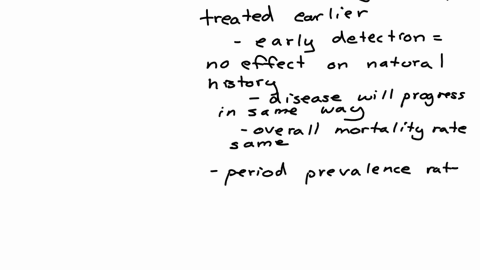 treated earlier
- early detection =
no effect on natural
history
- disease will progress
in same way
- overall mortality rate
same
- period prevalence rat